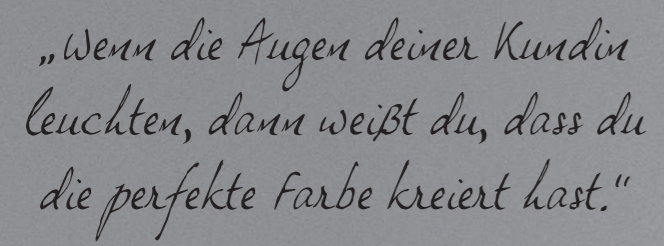 „Wenn die Augen deiner Kundin
leuchten, dann weißt du, dass du
die perfekte Farbe kreiert hast.“